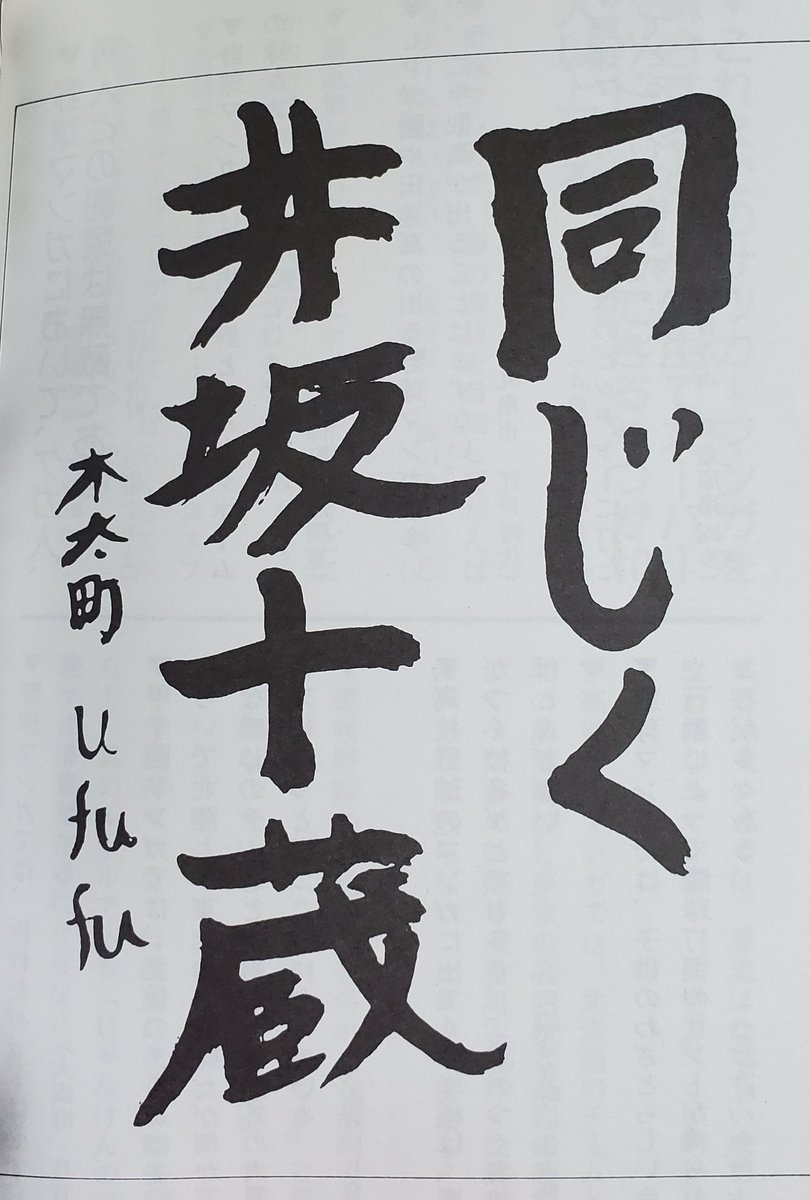 同じく
井坂十蔵
木太町 U fu fu